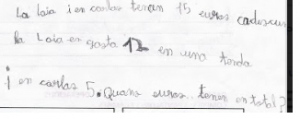 La laia i en carlas tenen 15 euros cadascun
la Laia en gasta 12 en una tenda
i en carlas 5. Quans euros tenen en total?